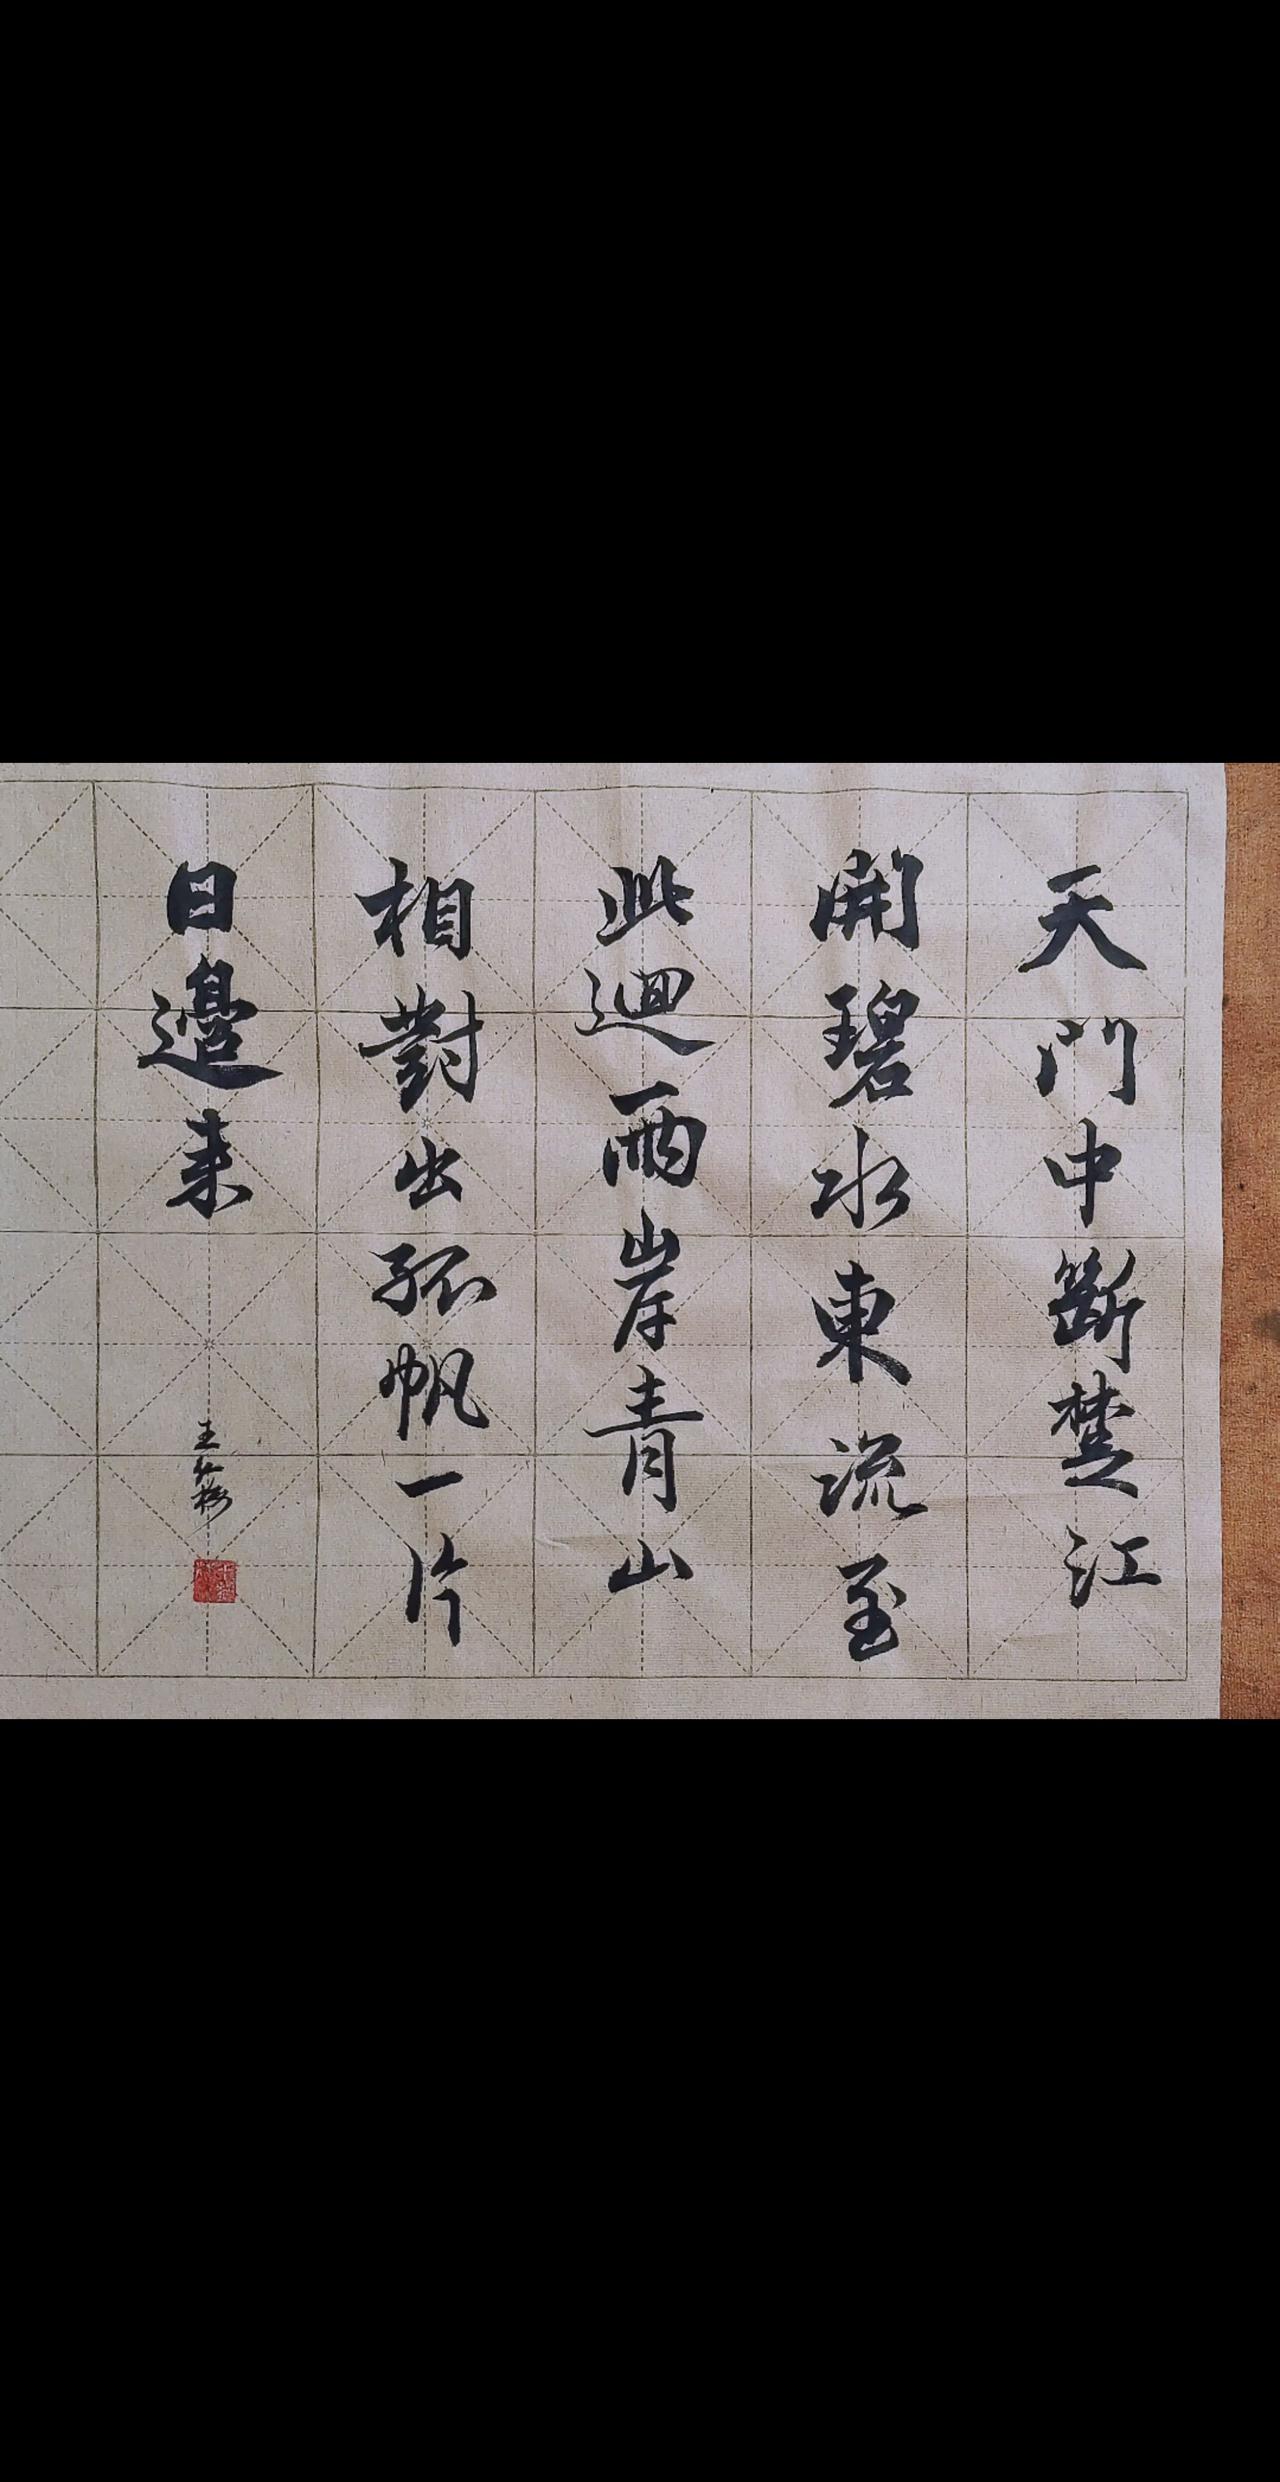 天門中斷楚江
開碧水東流至
此迴兩岸青山
相對出孤帆一片
日邊来
王